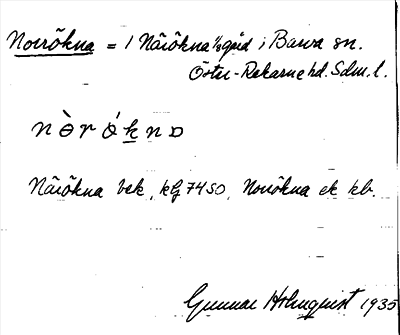 Norrökna = 1 Närökna ½ gård i Barva sn.
Öster-Rekarne hd. Sdm. l.
n ò r ó k n a
Närökna bek. kG 7450, Norrökna ek kb.
Gunnar Holmquist 1935